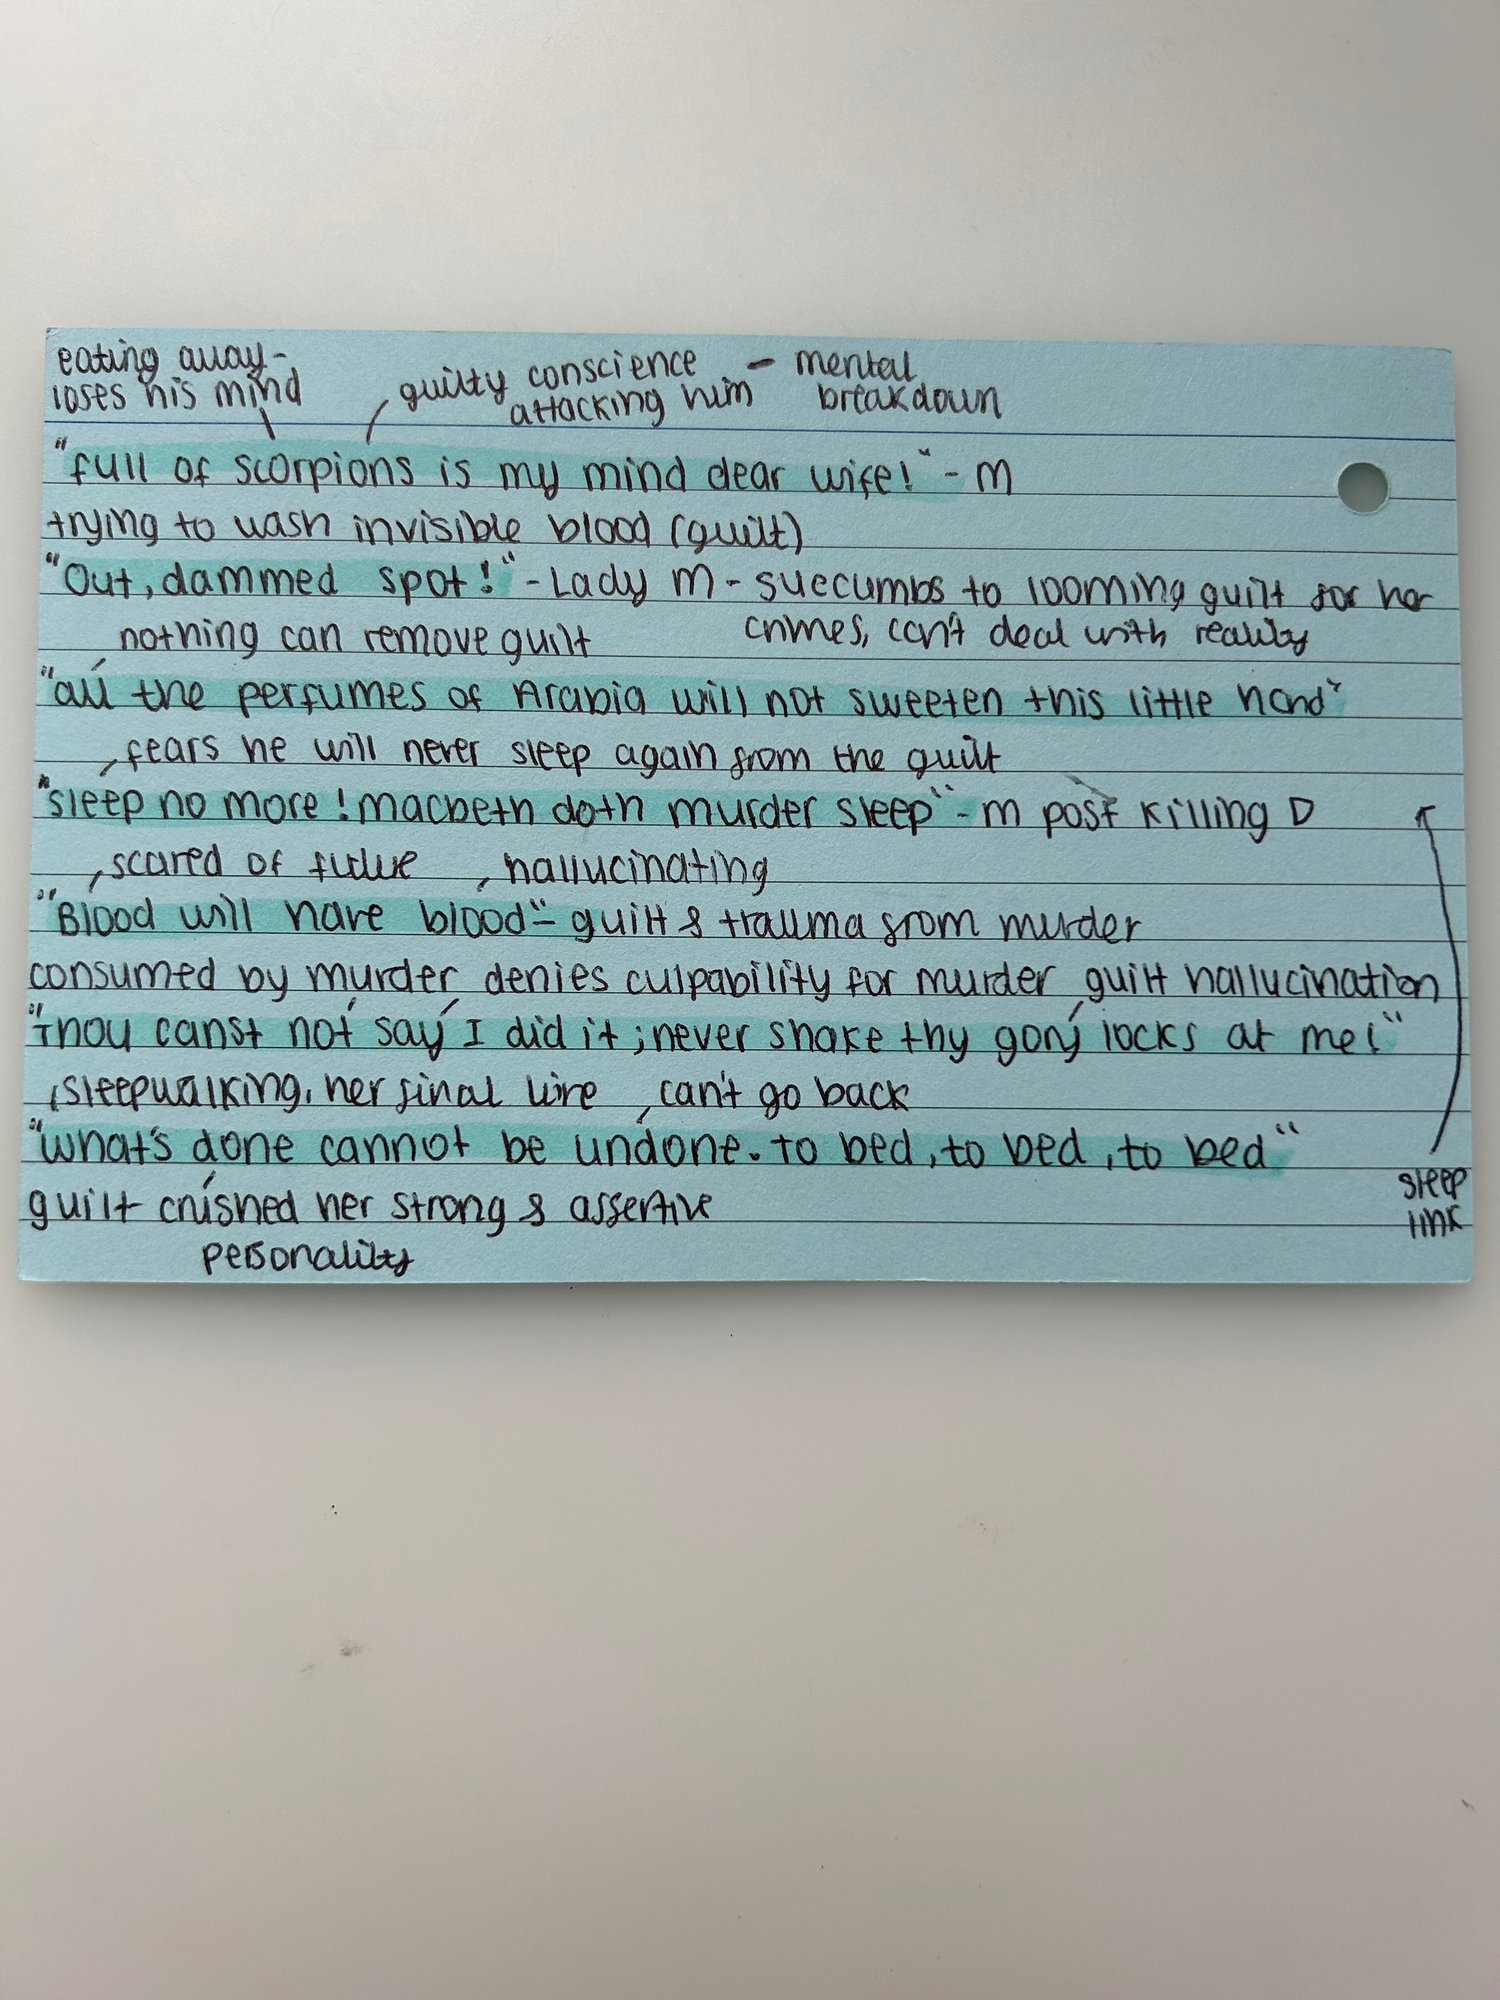 eating away-
loses his mind
guilty conscience - mental
attacking him breakdown
"full of scorpions is my mind dear wife!" - M
trying to wash invisible blood (guilt)
"Out, dammed spot!" - Lady M - succumbs to looming guilt for her
nothing can remove guilt crimes, can't deal with reality
"all the perfumes of Arabia will not sweeten this little hand"
fears he will never sleep again from the guilt
"sleep no more! macbeth doth murder sleep" - M post killing D
scared of future, hallucinating
"Blood will have blood" - guilt & trauma from murder
consumed by murder denies culpability for murder guilt hallucination
"Thou canst not say I did it; never shake thy gory locks at me!"
sleepwalking, her final line, can't go back
"what's done cannot be undone. to bed, to bed, to bed"
guilt crushed her strong & assertive
personality
sleep
link